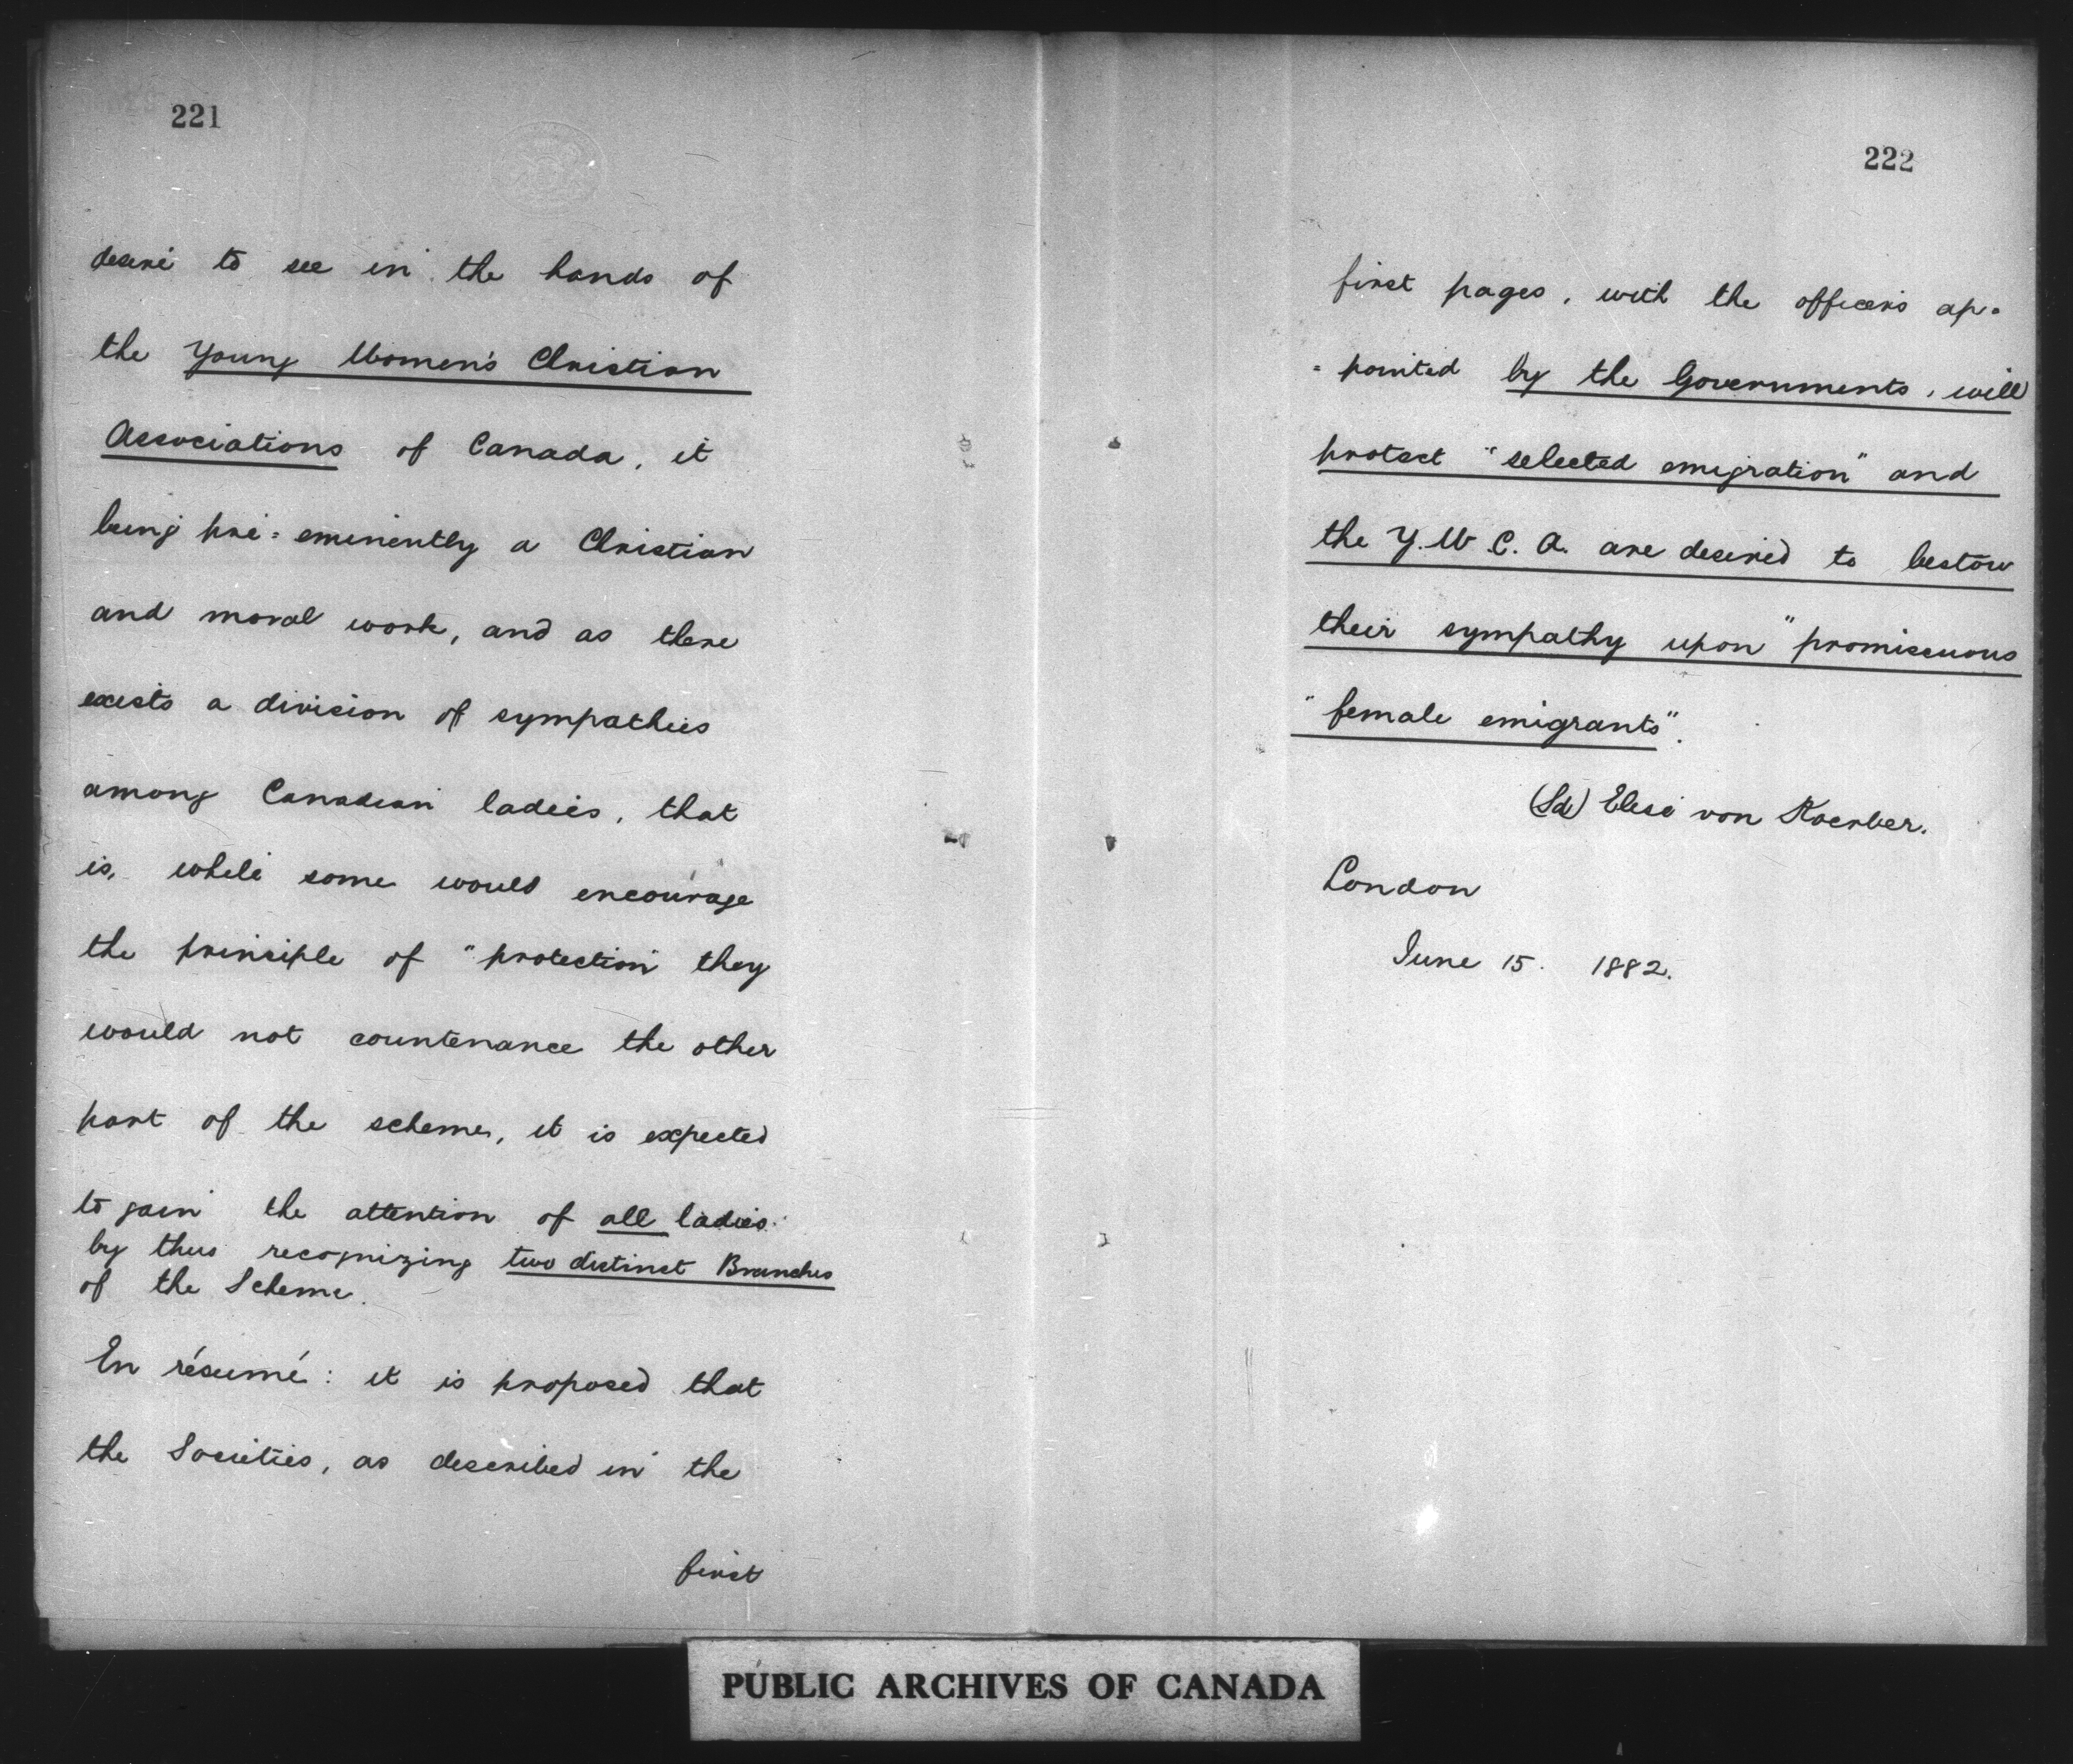 221
desire to see in the hands of
the Young Women's Christian
Associations of Canada, it
being pre=eminently a Christian
and moral work, and as there
exists a division of sympathies
among Canadian ladies, that
is, while some would encourage
the principle of "protection" they
would not countenance the other
part of the scheme, it is expected
to gain the attention of all ladies
by thus recognizing two distinct Branches
of the Scheme.
En résumé: it is proposed that
the Societies, as described in the
first
222
first pages, with the officers ap=
=pointed by the Governments, will
protect "selected emigration" and
the Y.W.C.A. are desired to bestow
their sympathy upon "promiscuous
"female emigrants".
(Sd) Elise von Koerber.
London
June 15. 1882.
PUBLIC ARCHIVES OF CANADA